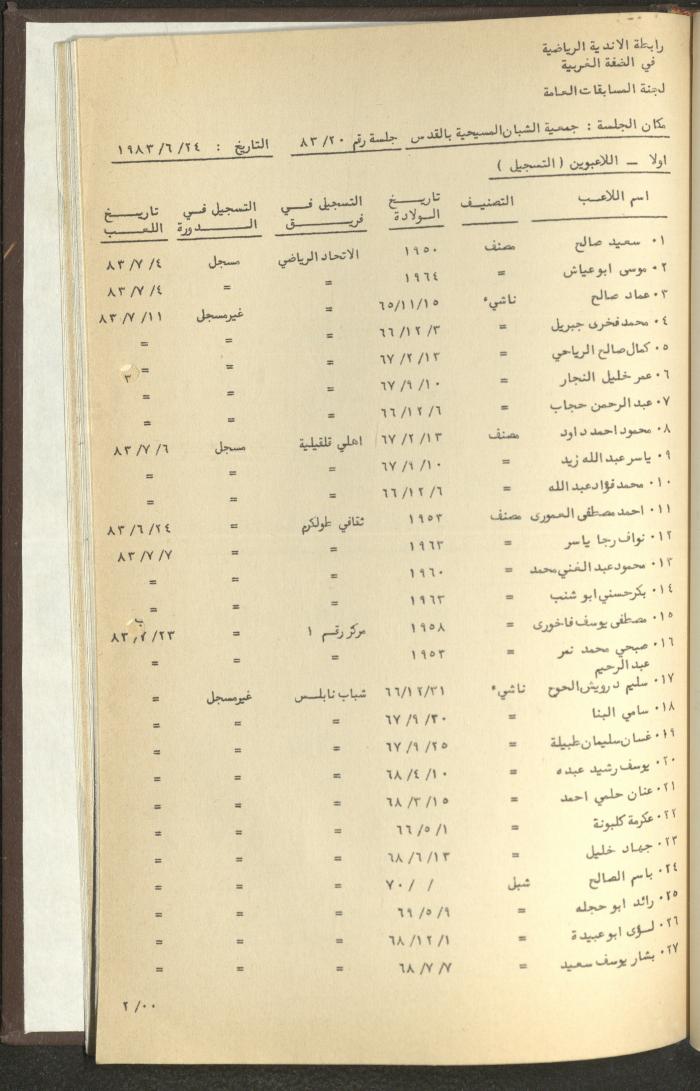 رابطة الاندية الرياضية
في الضفة الغربية
لجنة المسابقات العامة
مكان الجلسة : جمعية الشبان المسيحية بالقدس جلسة رقم ٨٣/٢٠ التاريخ : ١٩٨٣/٦/٢٤
اولا ــ اللاعبون ( التسجيل )
اسم اللاعب التصنيف تاريخ الولادة التسجيل في فريق التسجيل في الدورة تاريخ اللعب
٠١ سعيد صالح مصنف ١٩٥٠ الاتحاد الرياضي مسجل ٨٣/٧/٤
٠٢ موسى ابو عياش = ١٩٦٤ = = ٨٣/٧/٤
٠٣ عماد صالح ناشيء ٦٥/١١/١٥ = غير مسجل ٨٣/٧/١١
٠٤ محمد فخرى جبريل = ٦٦/١٢/٣ = = =
٠٥ كمال صالح الرياحي = ٦٧/٢/١٣ = = =
٠٦ عمر خليل النجار = ٦٧/٩/١٠ = = =
٠٧ عبد الرحمن حجاب = ٦٦/١٢/٦ = = =
٠٨ محمود احمد داود مصنف ٦٧/٢/١٣ اهلي قلقيلية مسجل ٨٣/٧/٦
٠٩ ياسر عبد الله زيد = ٦٧/٩/١٠ = = =
٠١٠ محمد فؤاد عبد الله = ٦٦/١٢/٦ = = =
٠١١ احمد مصطفى العمورى مصنف ١٩٥٣ ثقافي طولكرم = ٨٣/٦/٢٤
٠١٢ نواف رجا ياسر = ١٩٦٣ = = ٨٣/٧/٧
٠١٣ محمود عبد الغني محمد = ١٩٦٠ = = =
٠١٤ بكر حسني ابو شنب = ١٩٦٣ = = =
٠١٥ مصطفى يوسف فاخورى = ١٩٥٨ مركز رقم ١ = ٨٣/٧/٢٣
٠١٦ صبحي محمد نمر = ١٩٥٣ = = =
عبد الرحيم
٠١٧ سليم درويش الحوح ناشيء ٦٦/١٢/٣١ شباب نابلس غير مسجل =
٠١٨ سامي البنا = ٦٧/٩/٣٠ = = =
٠١٩ غسان سليمان طبيلة = ٦٧/٩/٢٥ = = =
٠٢٠ يوسف رشيد عبده = ٦٨/٤/١٠ = = =
٠٢١ عنان حلمي احمد = ٦٨/٣/١٥ = = =
٠٢٢ عكرمة كلبونة = ٦٦/٥/١ = = =
٠٢٣ جهاد خليل = ٦٨/٦/١٣ = = =
٠٢٤ باسم الصالح شبل ٧٠/ / = = =
٠٢٥ رائد ابو حجله = ٦٩/٥/٩ = = =
٠٢٦ لؤى ابو عبيدة = ٦٨/١٢/١ = = =
٠٢٧ بشار يوسف سعيد = ٦٨/٧/٧ = = =
٢/٠٠